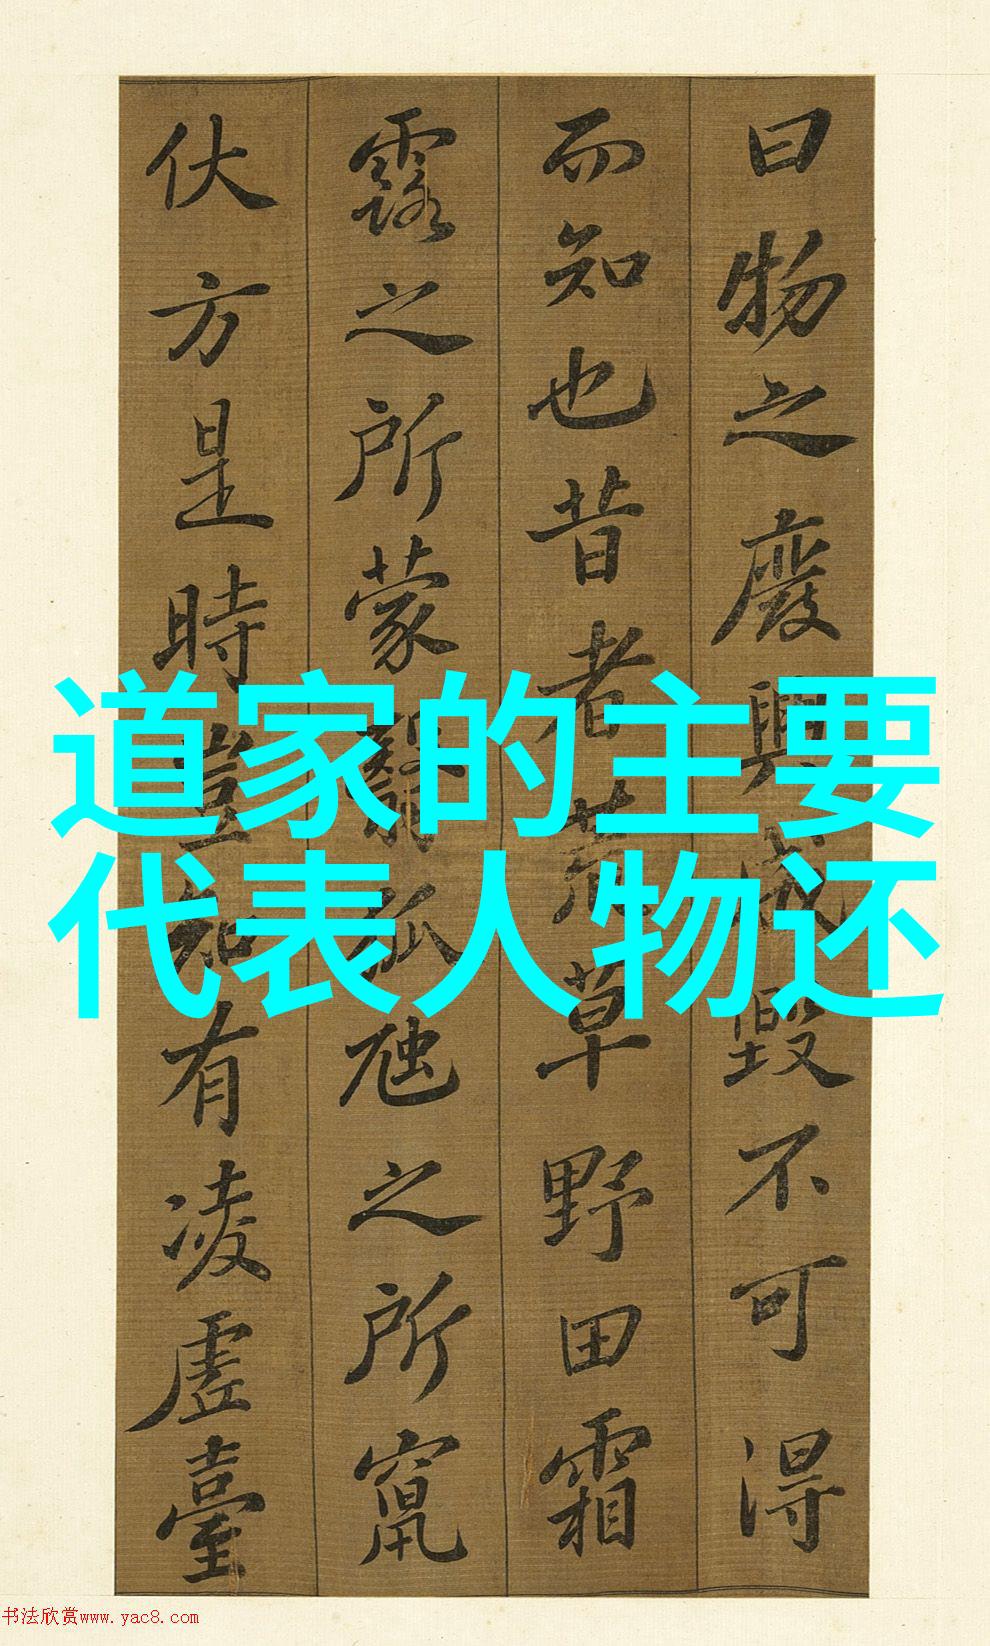 道家的主要
代表人物还
曰物之廢興成毀不可得
而知也昔者荒草野田霜
露之所蒙翳狐虺之所竄
伏方是時豈知有凌虛臺
书法欣赏www.yac8.com